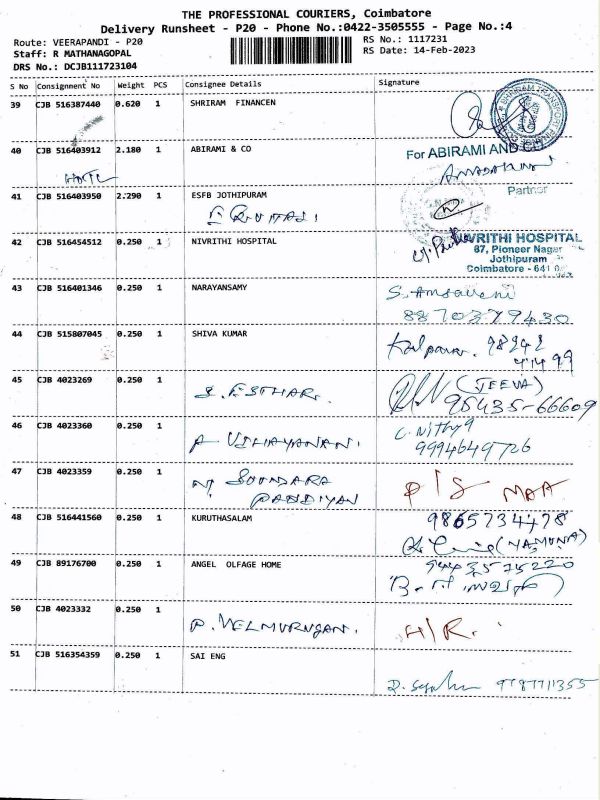 THE PROFESSIONAL COURIERS, Coimbatore
Delivery Runsheet - P20 - Phone No.:0422-3505555 - Page No.:4
Route: VEERAPANDI - P20
RS No.: 1117231
Staff: R MATHANAGOPAL
RS Date: 14-Feb-2023
DRS No.: DCJB111723104
S No Consignment No Weight PCS Consignee Details Signature
39 CJB 516387440 0.620 1 SHRIRAM FINANCEN
40 CJB 516403912 2.180 1 ABIRAMI & CO For ABIRAMI AND CO
Partner
41 CJB 516403950 2.290 1 ESFB JOTHIPURAM
42 CJB 516454512 0.250 1 NIVRITHI HOSPITAL NIVRITHI HOSPITAL
87, Pioneer Nagar
Jothipuram
Coimbatore - 641
43 CJB 516401346 0.250 1 NARAYANSAMY
8870379430
44 CJB 515807045 0.250 1 SHIVA KUMAR Kalpana.
45 CJB 4023269 0.250 1 S. ESTHAR. (JEEVA)
95435-66609
46 CJB 4023360 0.250 1 A VIJIAYANAN. C. Nithya
9994649726
47 CJB 4023359 0.250 1 M SOUNDARA
PANDIYAN
P/S MAA
48 CJB 516441560 0.250 1 KURUTHASALAM 9865734478
(YAMUNA)
49 CJB 89176700 0.250 1 ANGEL OLFAGE HOME 9443575220
50 CJB 4023332 0.250 1 P. VELMURUGAN. H/R.
51 CJB 516354359 0.250 1 SAI ENG